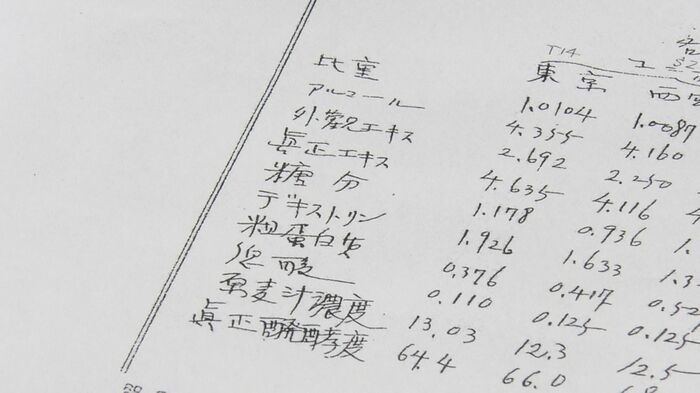 T14
東京 西宮
比重 1.0104 1.0087
アルコール 4.355 4.160
外観エキス 2.692 2.250
眞正エキス 4.635 4.116 4
糖分 1.178 0.936 1.
デキストリン 1.926 1.633 1.3
粗蛋白質 0.376 0.417 0.52
総酸 0.110 0.125 0.125
原麦汁濃度 13.03 12.3 12.5
眞正醗酵度 64.4 66.0